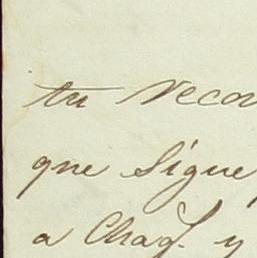 tu recor
que sigue
a Chag. y